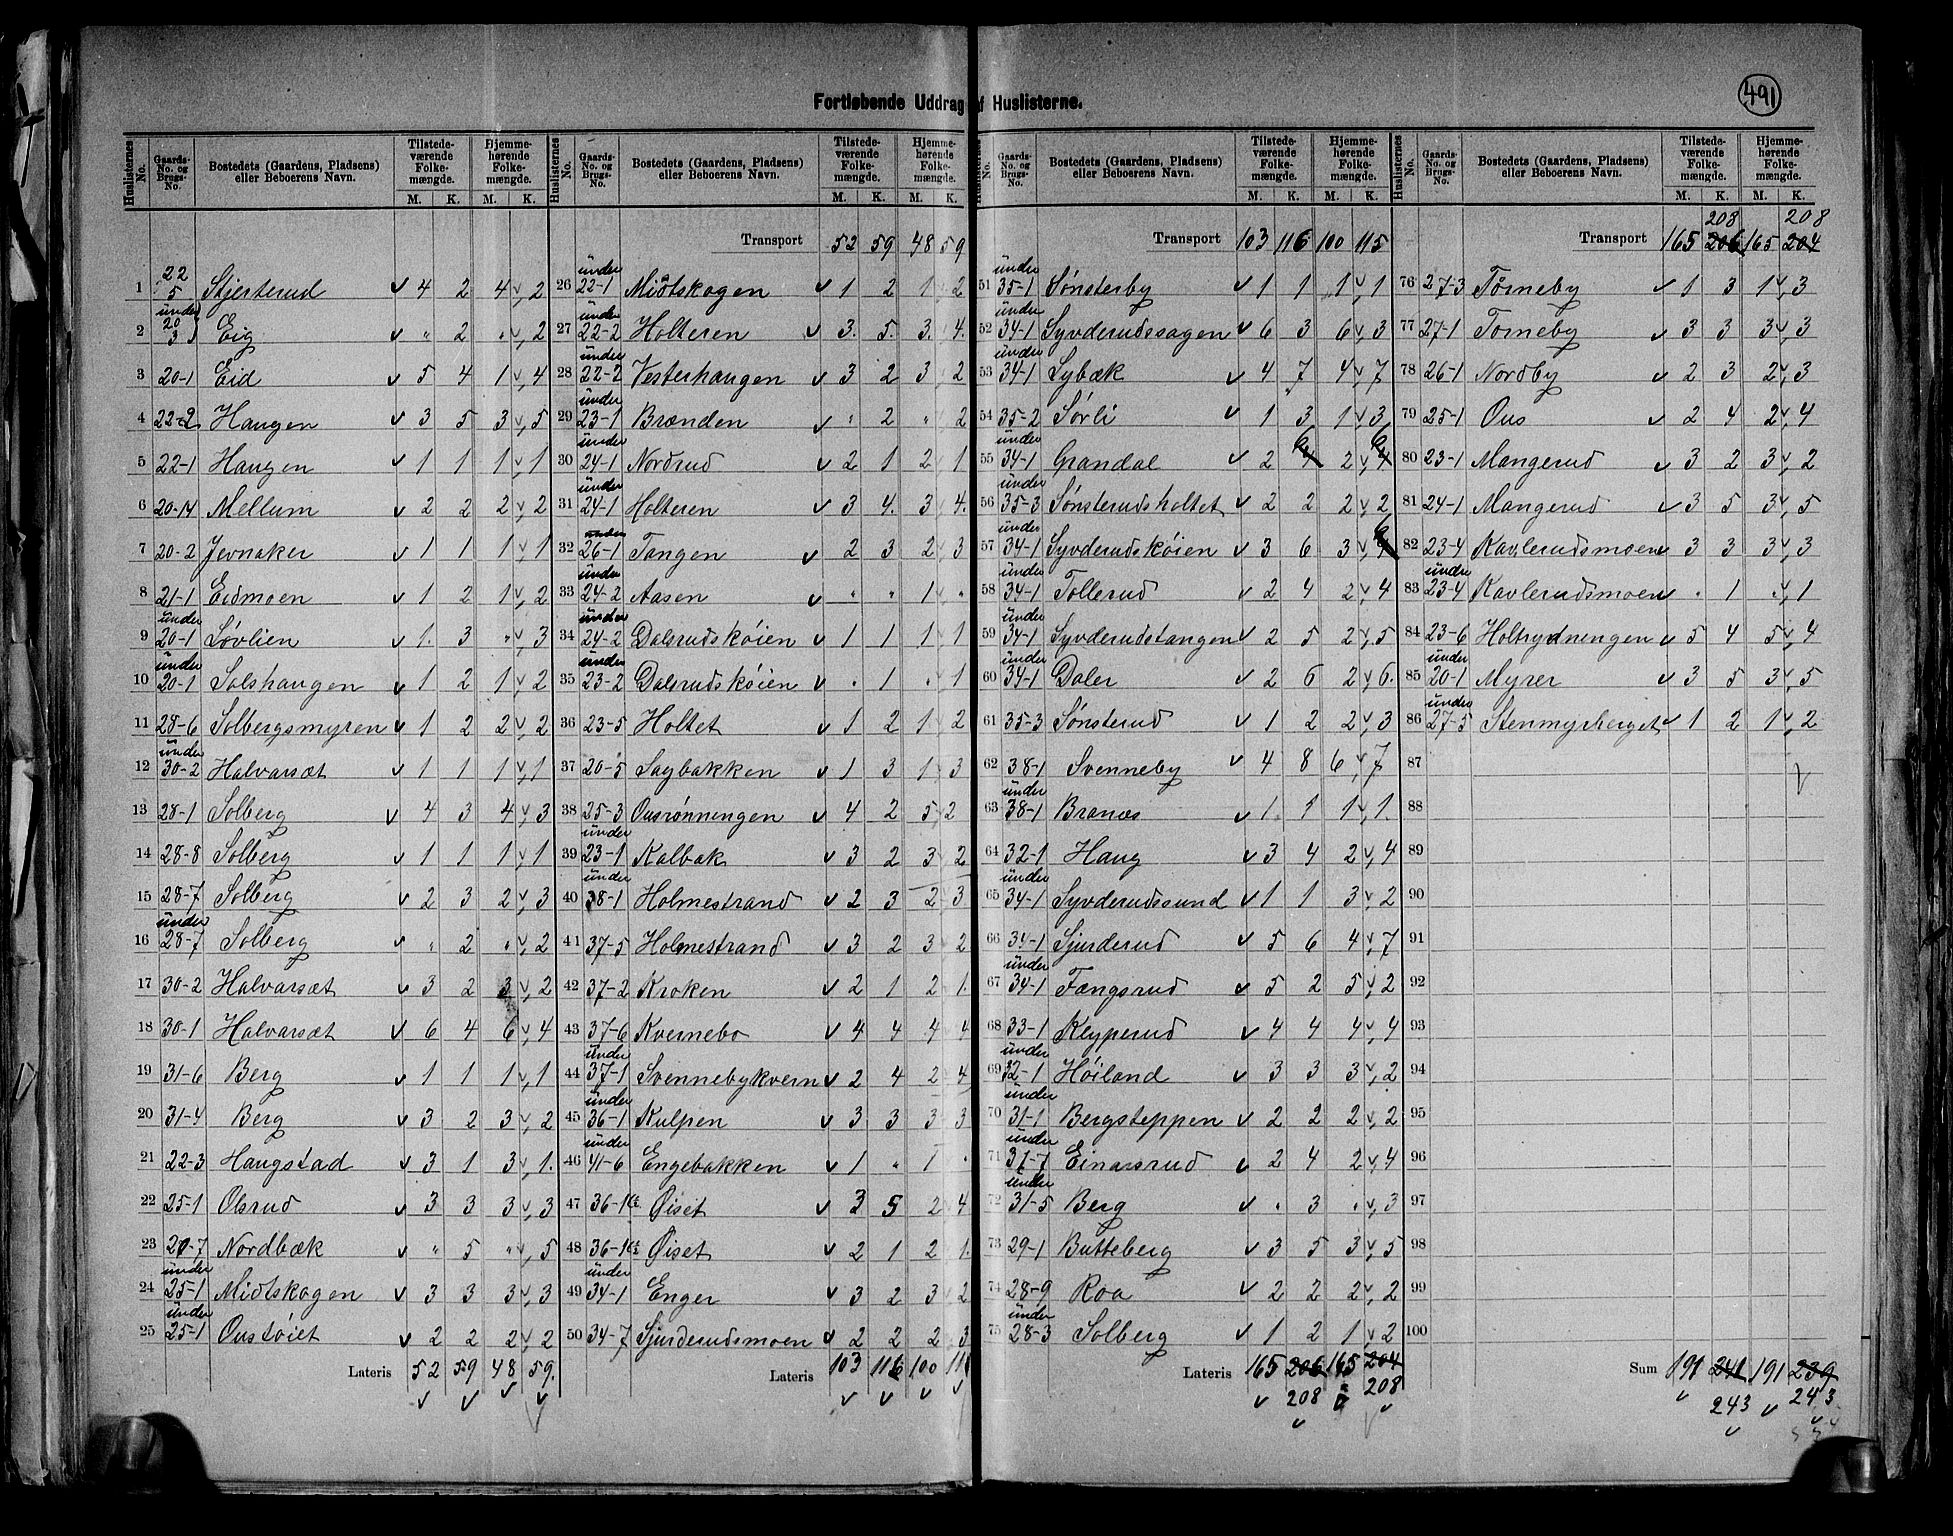 491
Fortløbende Uddrag af Huslisterne.
Huslisternes No. Gaards-No. og Brugs-No. Bostedets (Gaardens, Pladsens) eller Beboerens Navn. Tilstedeværende Folkemængde. M. K. Hjemmehørende Folkemængde. M. K.
1 22/5 Stjerterud 4 2 4 2
2 under 20/3 Eig " 2 " 2
3 20-1 Eid 5 4 1 4
4 22-2 Haugen 3 5 3 5
5 22-1 Haugen 1 1 1 1
6 20-14 Mellum 2 2 2 2
7 20-2 Jevnaker 1 1 1 1
8 21-1 Eidmoen 1 2 1 2
9 under 20-1 Løvlien 1 3 " 3
10 under 20-1 Solshaugen 1 2 1 2
11 28-6 Solbergsmyren 1 2 2 2
12 under 30-2 Halvarsæt 1 1 1 1
13 28-1 Solberg 4 3 4 3
14 28-8 Solberg 1 1 1 1
15 28-7 Solberg 2 3 2 3
16 under 28-7 Solberg " 2 " 2
17 30-2 Halvarsæt 3 2 3 2
18 30-1 Halvarsæt 6 4 6 4
19 31-6 Berg 1 1 1 1
20 31-4 Berg 3 2 3 2
21 22-3 Haugstad 3 1 3 1
22 25-1 Olsrud 3 3 3 3
23 27-7 Nordbæk " 5 " 5
24 under 25-1 Midtskogen 3 3 3 3
25 under 25-1 Oustøiet 2 2 2 2
Lateris 52 59 48 59
Huslisternes No. Gaards-No. og Brugs-No. Bostedets (Gaardens, Pladsens) eller Beboerens Navn. Tilstedeværende Folkemængde. M. K. Hjemmehørende Folkemængde. M. K.
Transport 52 59 48 59
26 under 22-1 Midtskogen 1 2 1 2
27 under 22-2 Holteren 3 5 3 4
28 under 22-2 Vesterhaugen 3 2 3 2
29 under 23-1 Brænden " 2 " 2
30 under 24-1 Nordrud 2 1 2 1
31 under 24-1 Holteren 3 4 3 4
32 under 26-1 Tangen 2 3 2 3
33 under 24-2 Aasen " " 1 "
34 under 24-2 Dalsrudskøien 1 1 1 1
35 under 23-2 Dalsrudskøien " 1 " 1
36 23-5 Holtet 1 2 1 2
37 20-5 Sagbakken 1 3 1 3
38 25-3 Ousrønningen 4 2 5 2
39 under 23-1 Kalbak 3 2 3 2
40 under 38-1 Holmestrand 2 3 2 3
41 37-5 Holmestrand 3 2 3 2
42 37-2 Kroken 2 1 2 1
43 37-6 Kvernebo 4 4 4 4
44 under 37-1 Svennebykvern 2 4 2 4
45 under 36-1 Kulpen 3 3 3 3
46 under 41-6 Engebakken 1 " 1 "
47 36-1 Øiset 3 5 2 4
48 36-1 Øiset 2 1 2 1
49 under 34-1 Enger 3 2 3 2
50 34-7 Sjurderudsmoen 2 2 2 3
Lateris 103 116 100
Huslisternes No. Gaards-No. og Brugs-No. Bostedets (Gaardens, Pladsens) eller Beboerens Navn. Tilstedeværende Folkemængde. M. K. Hjemmehørende Folkemængde. M. K.
Transport 103 116 100 115
51 under 35-1 Sønsterby 1 1 1 1
52 under 34-1 Syvderudssagen 6 3 6 3
53 under 34-1 Lybæk 4 7 4 7
54 35-2 Sørli 1 3 1 3
55 under 34-1 Grandal 2 2
56 under 35-3 Sønsterudsholtet 2 2 2 2
57 under 34-1 Syvderudskøien 3 6 3
58 under 34-1 Tollerud 2 4 2 4
59 under 34-1 Syvderudstangen 2 5 2 5
60 under 34-1 Daler 2 6 2 6
61 35-3 Sønsterud 1 2 2 3
62 38-1 Svenneby 4 8 6 7
63 under 38-1 Branæs 1 1 1 1
64 32-1 Haug 3 4 2 4
65 under 34-1 Syvderudssund 1 1 3 2
66 34-1 Sjurderud 5 6 4 7
67 under 34-1 Fængsrud 5 2 5 2
68 33-1 Klyperud 4 4 4 4
69 under 32-1 Høiland 3 3 3 2
70 under 31-1 Bergsteppen 2 2 2 2
71 under 31-7 Einarsrud 2 4 2 4
72 under 31-5 Berg " 3 " 3
73 29-1 Butteberg 3 5 3 5
74 28-9 Roa 2 2 2 2
75 under 28-3 Solberg 1 2 1 2
Lateris 165 206 165 204
208 208
Huslisternes No. Gaards-No. og Brugs-No. Bostedets (Gaardens, Pladsens) eller Beboerens Navn. Tilstedeværende Folkemængde. M. K. Hjemmehørende Folkemængde. M. K.
208 208
Transport 165 206 165 204
76 27-3 Tørneby 1 3 1 3
77 27-1 Tørneby 3 3 3 3
78 26-1 Nordby 2 3 2 3
79 25-1 Ous 2 4 2 4
80 23-1 Mangerud 3 2 3 2
81 24-1 Mangerud 3 5 3 5
82 23-4 Kavlerudsmoen 3 3 3 3
83 under 23-4 Kavlerudsmoen " 1 " 1
84 23-6 Holtrydningen 5 4 5 4
85 under 20-1 Myrer 3 5 3 5
86 under 27-5 Stenmyrberget 1 2 1 2
87
88
89
90
91
92
93
94
95
96
97
98
99
100
Sum 191 241 191 239
243 243